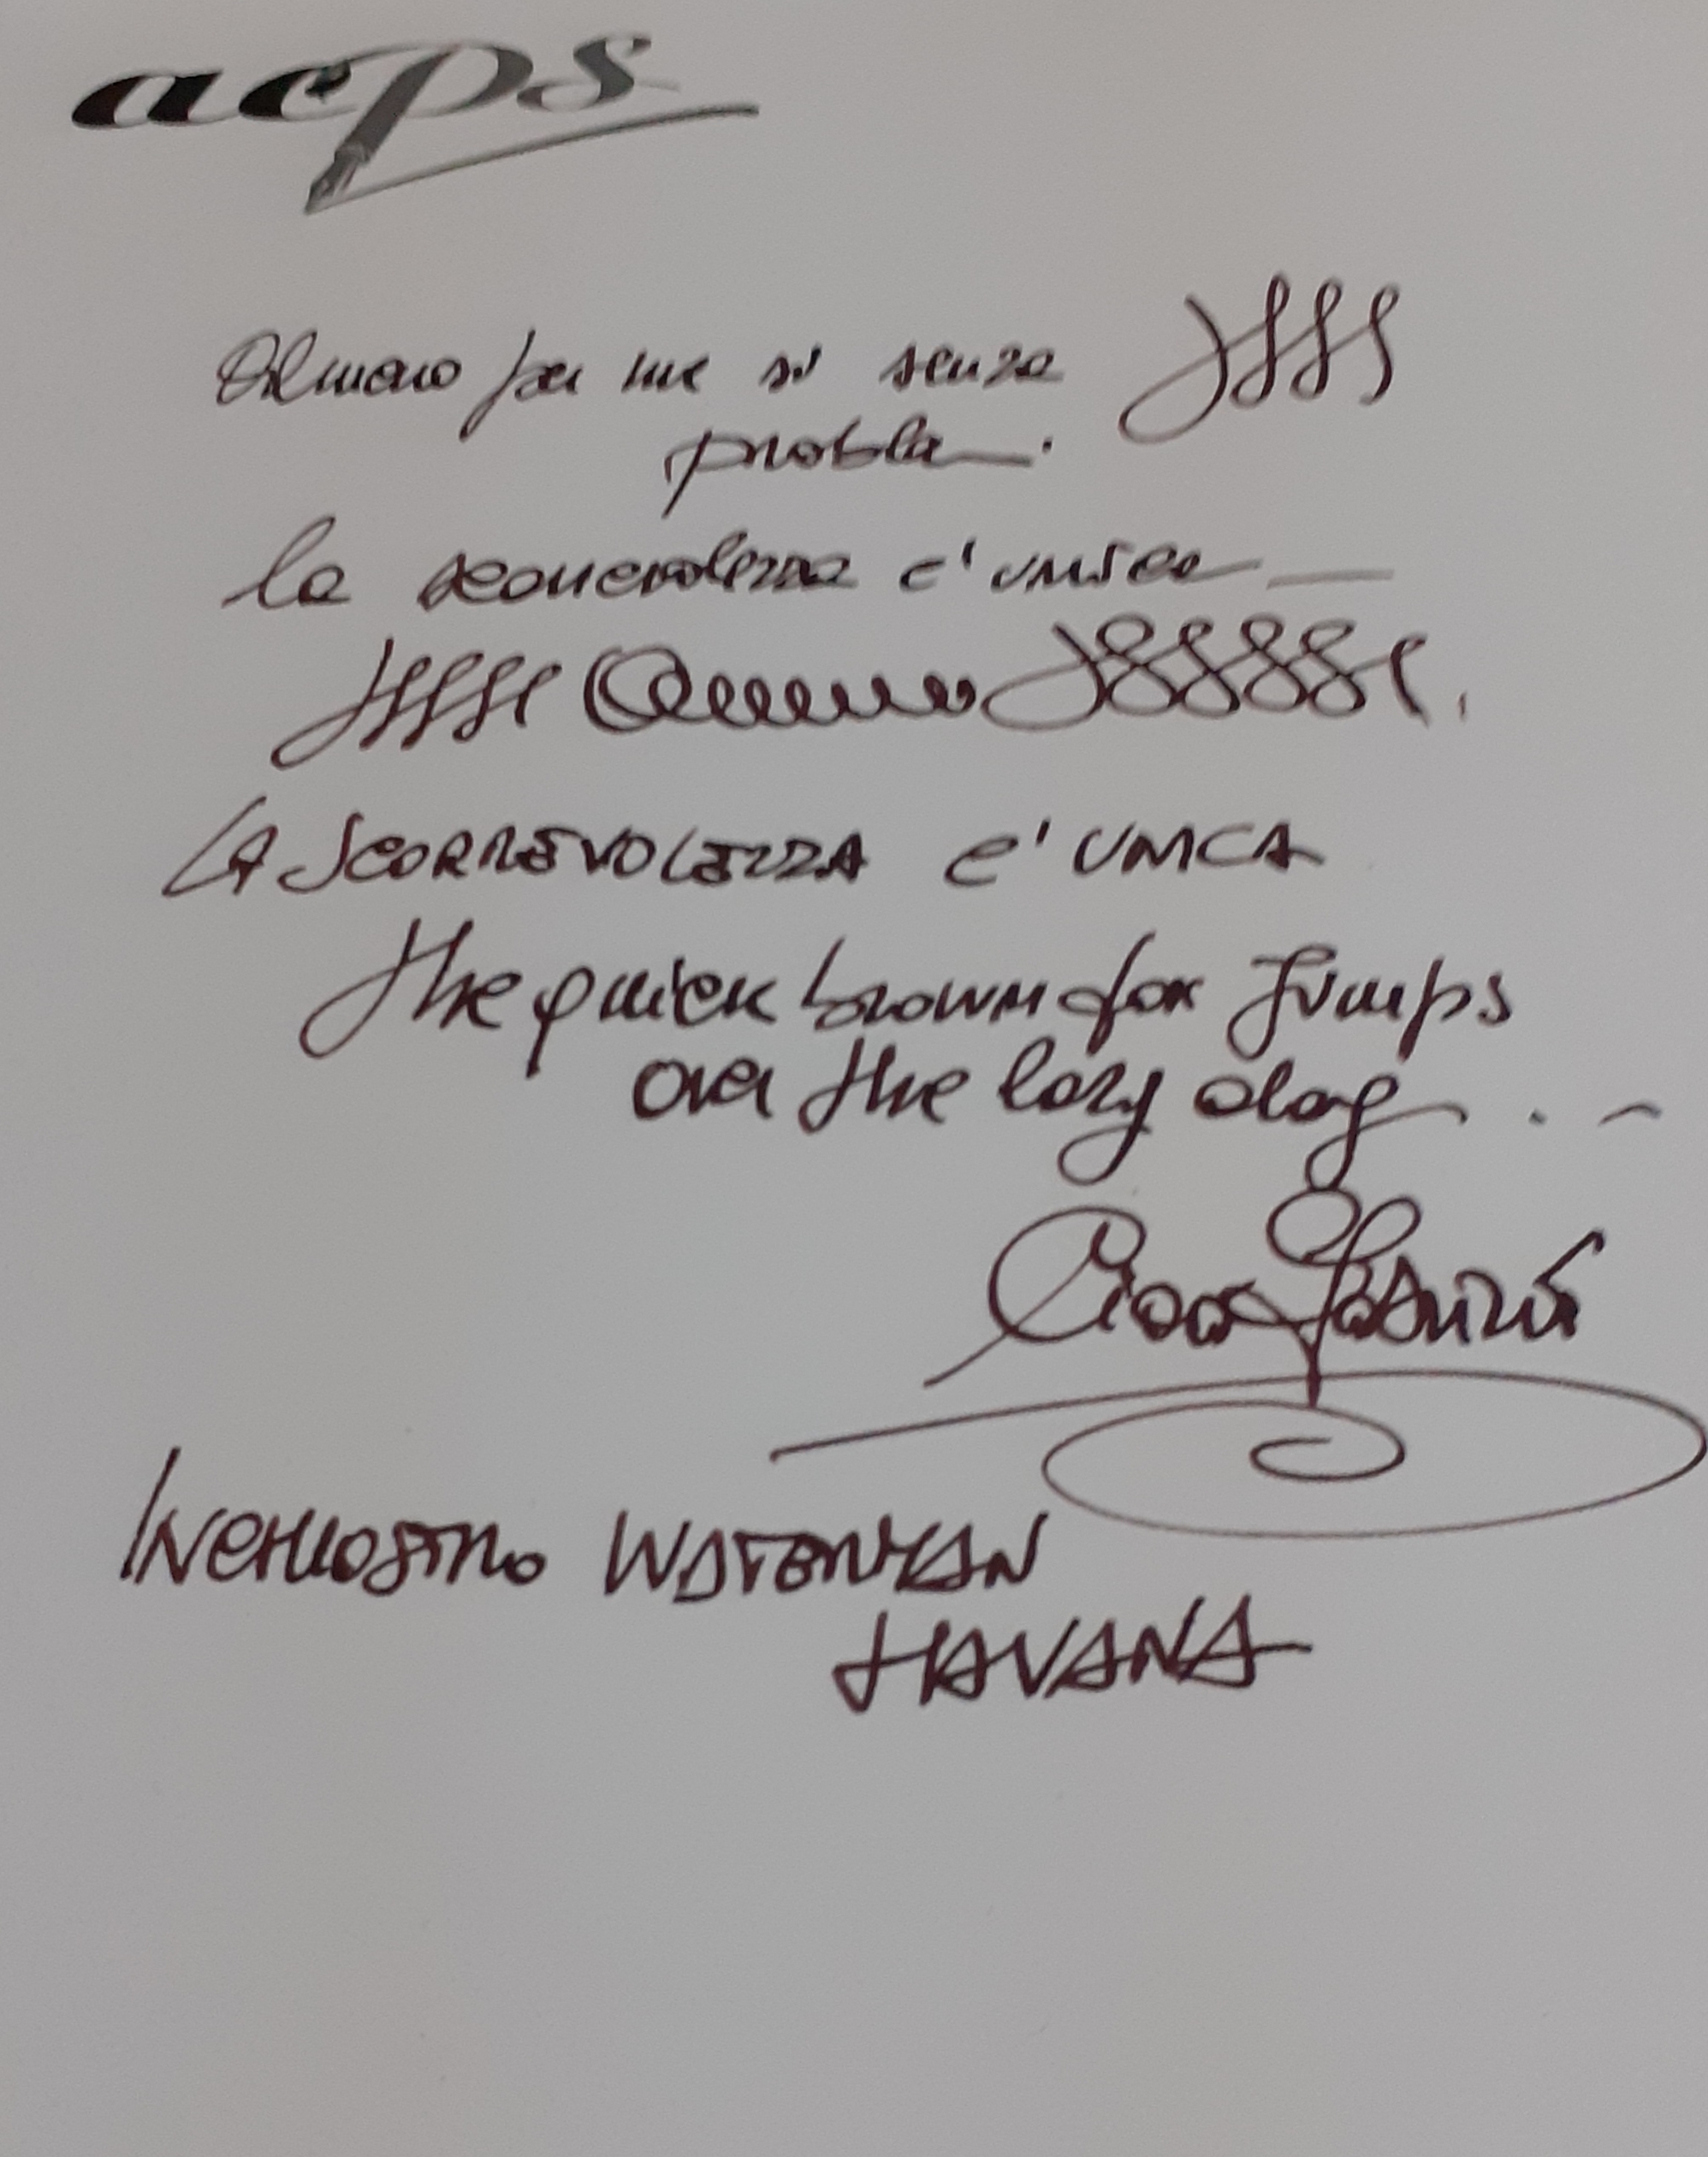 acps
Almeno per me si senza
problem.
la scorrevolezza e' unica
LA SCORREVOLEZZA E' UNICA
the quick brown fox Jumps
over the lazy dog...
Ciao
INCHIOSTRO WATERMAN
HAVANA